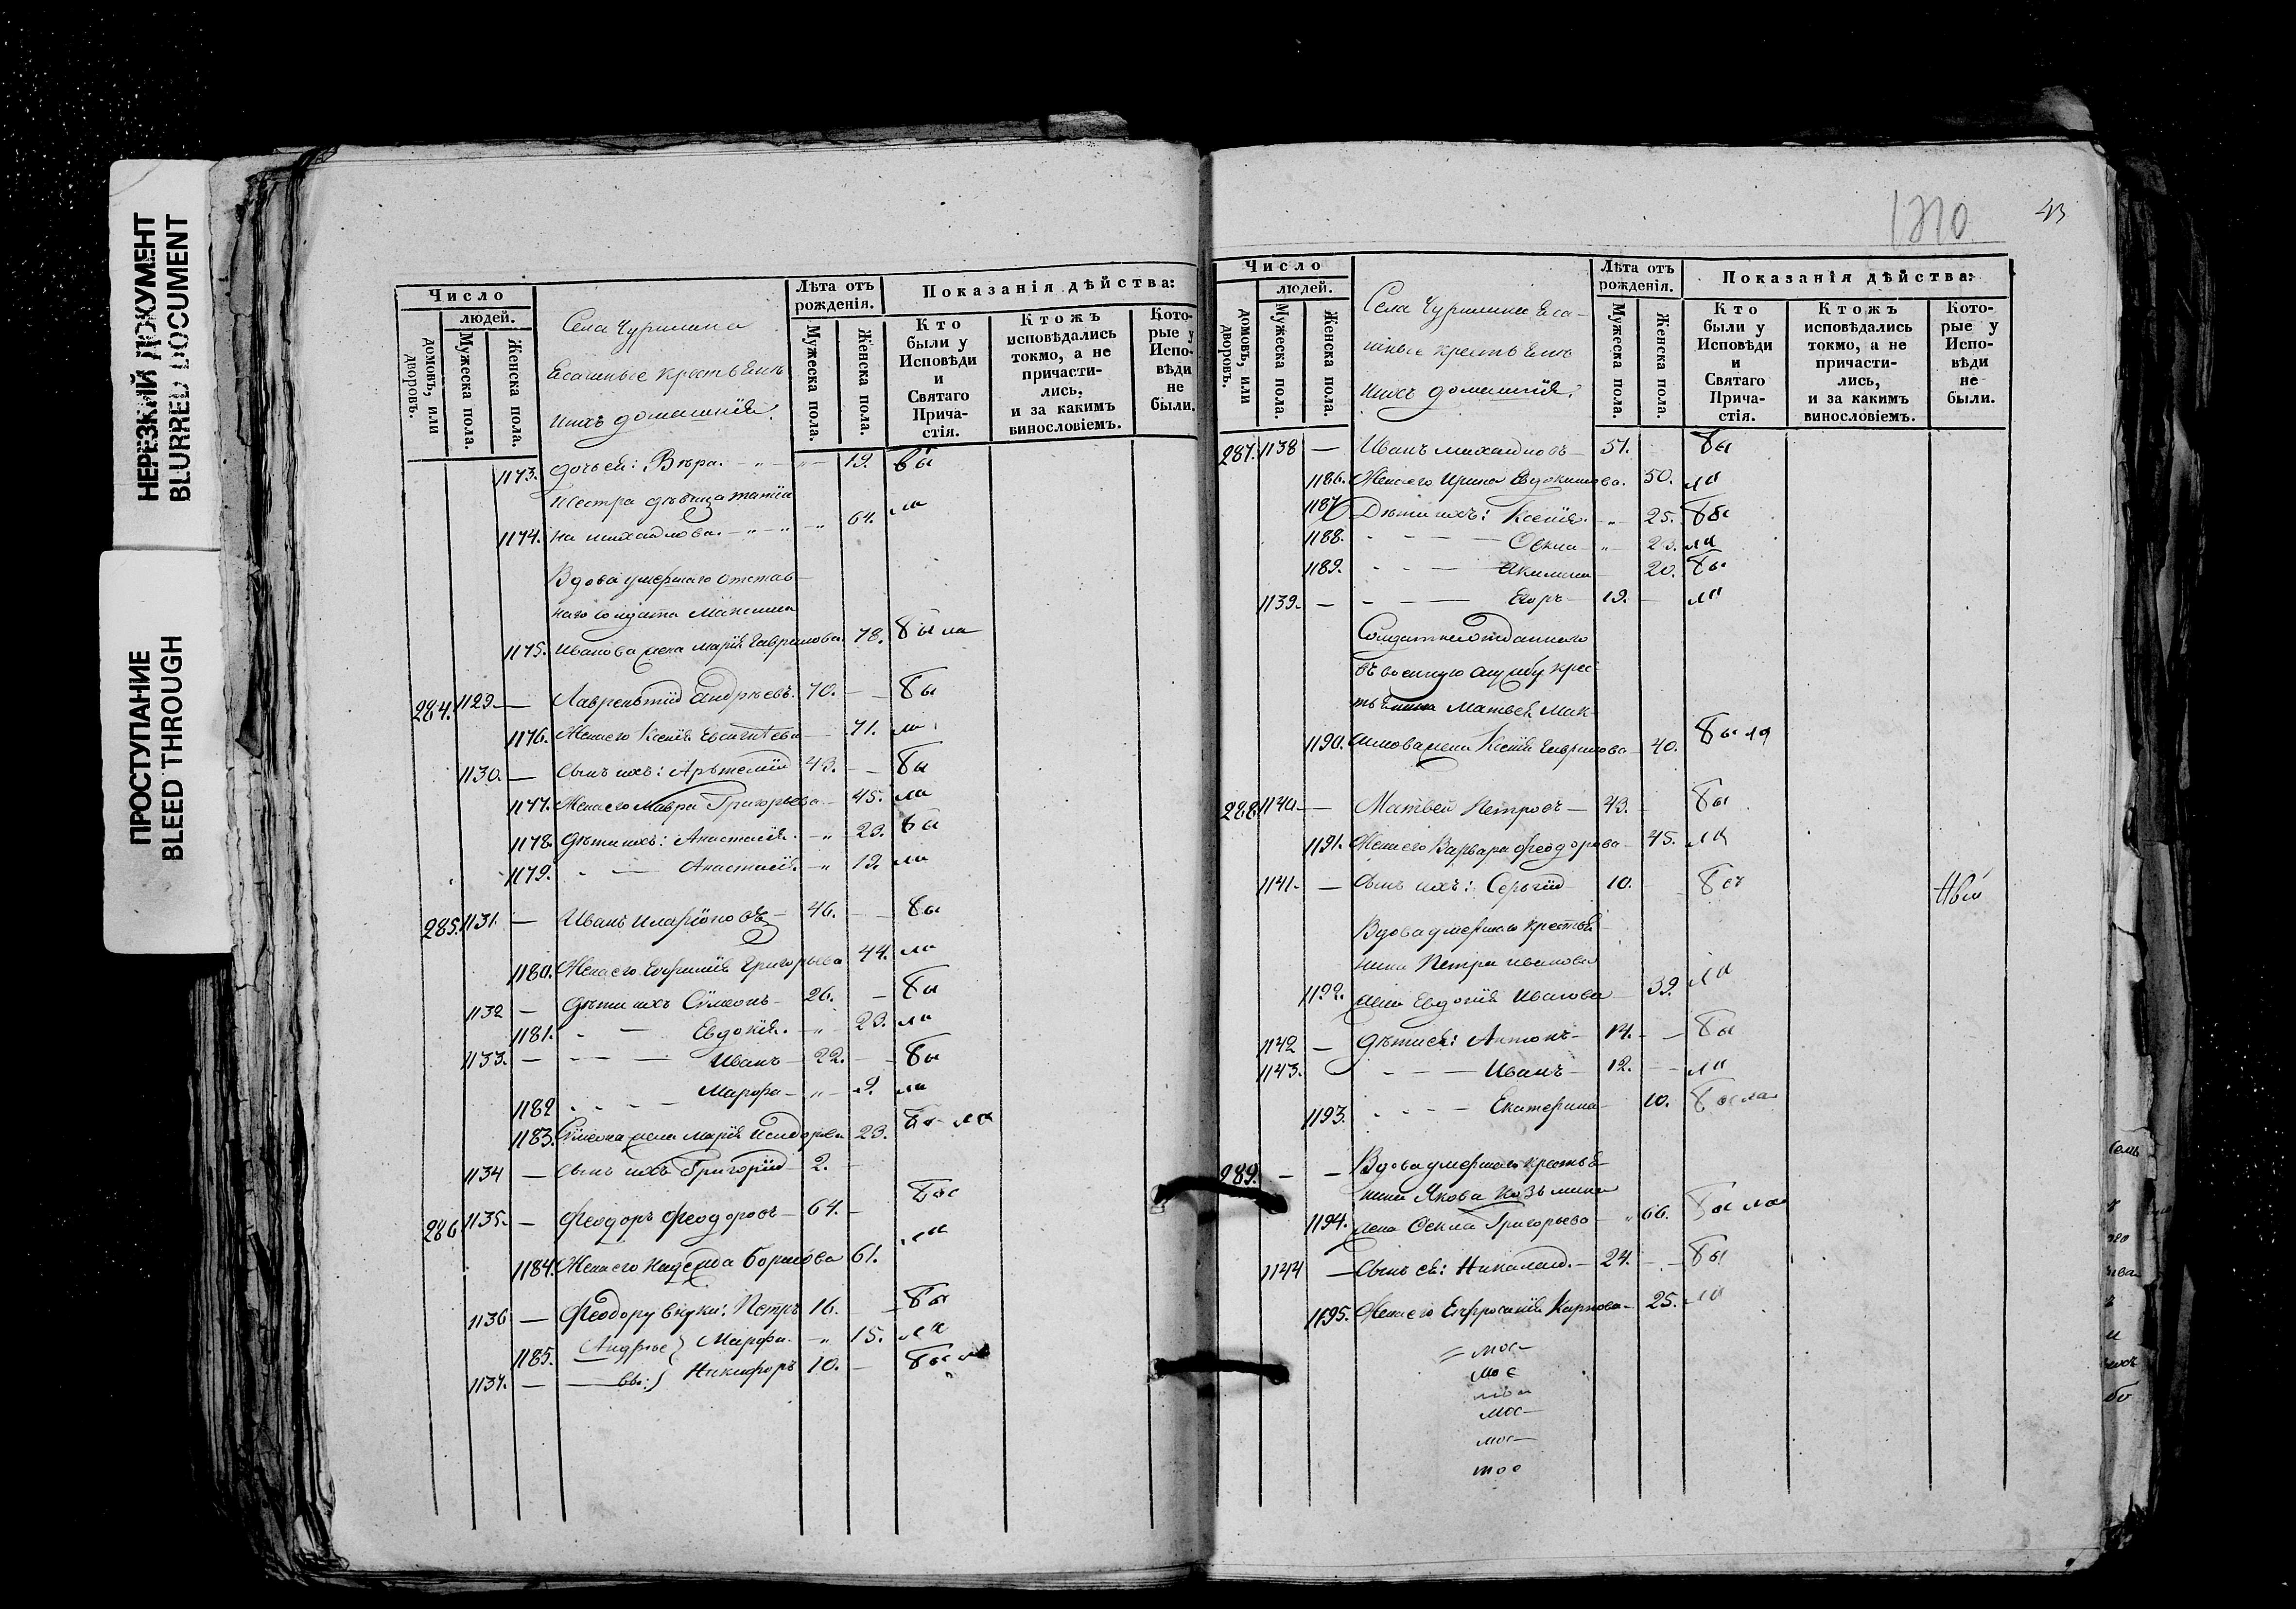 НЕРЕЗКИЙ ДОКУМЕНТ
BLURRED DOCUMENT
ПРОСТУПАНИЕ
BLEED THROUGH
Число
людей.
домовъ, или дворовъ.
Мужеска пола.
Женска пола.
Села Чурилина
Ясашные крестьяне
ихъ домашнія
Лѣта отъ рожденія.
Мужеска пола.
Женска пола.
Показанія дѣйства:
Кто были у Исповѣди и Святаго Прича-стія.
Ктожъ исповѣдались токмо, а не причасти-лись, и за какимъ винословіемъ.
Кото-рые у Испо-вѣди не были.
1173. дочь ея: Вѣра. 19. бы
Сестра дѣвица Татія
1174. на Михайлова. 64. ла
Вдова умершаго отстав
наго солдата Максима
1175. Иванова жена Марія Гаврилова. 78. была
284. 1129. — Лаврентій Андреевъ. 70. — бы
1176. Жена его Ксенія 71. ла
1130. — Сынъ ихъ: Артемій 43. — бы
1177. Жена его Мавра Григорьева 45. ла
1178. Дѣти ихъ: Анастасія. 23. бы
1179. Анастасія. 19. ла
285. 1131. — Иванъ Иларіоновъ 46. — бы
1180. Жена его Евфимія Григорьева 44. ла
1132 — Дѣти ихъ Сѵмеонъ 26. — бы
1181. Евдокія. 23. ла
1133. — Иванъ 22. — бы
1182 Марфа 9. ла
1183. Сѵмеона жена Марія Исидорова 23. бы-ла
1134 — Сынъ ихъ Григорій 2. —
286 1135. — Феодоръ Феодоровъ 64. — бы
1184. Жена его Надежда Борисова 61. ла
1136 — Феодору внуки: Петръ 16. — бы
1185. Андрѣе} Марфа. 15. ла
1137. — вы:} Никифоръ 10. — была
1210
43
Число
людей.
домовъ, или дворовъ.
Мужеска пола.
Женска пола.
Села Чурилина Яса-
шные крестьяне
ихъ домашнія.
Лѣта отъ рожденія.
Мужеска пола.
Женска пола.
Показанія дѣйства:
Кто были у Исповѣди и Святаго Прича-стія.
Ктожъ исповѣдались токмо, а не причасти-лись, и за какимъ винословіемъ.
Кото-рые у Испо-вѣди не были.
287. 1138 — Иванъ Михайловъ 51. бы
1186. Жена его Ирина Евдокимова. 50. ла
1187 Дѣти ихъ: Ксенія. 25. бы
1188. Фекла 23. ла
1189. Акилина 20. бы
1139. — Егоръ 19. — ла
Солдатка отданнаго
въ военную службу крес-
тьянина Матвея Мак-
1190. симова жена Ксенія Гаврилова 40. была
288 1140 — Матвей Петровъ 43. бы
1191. Жена его Варвара Феодорова 45. ла
1141. — Сынъ ихъ: Сергій 10. бы
Вдова умершаго крестья
нина Петра Иванова
1192. жена Евдокія Иванова 39. ла
1142 — Дѣти ея: Антонъ 14. — бы
1143. Иванъ 12. — ла
1193. Екатерина 10. была
289. — — Вдова умершаго крестья
нина Якова Козьмина
1194. жена Фекла Григорьева 66. была
1144 — Сынъ ея: Николай. 24. — бы
1195. Жена его Евфросинія Карпова 25. ла